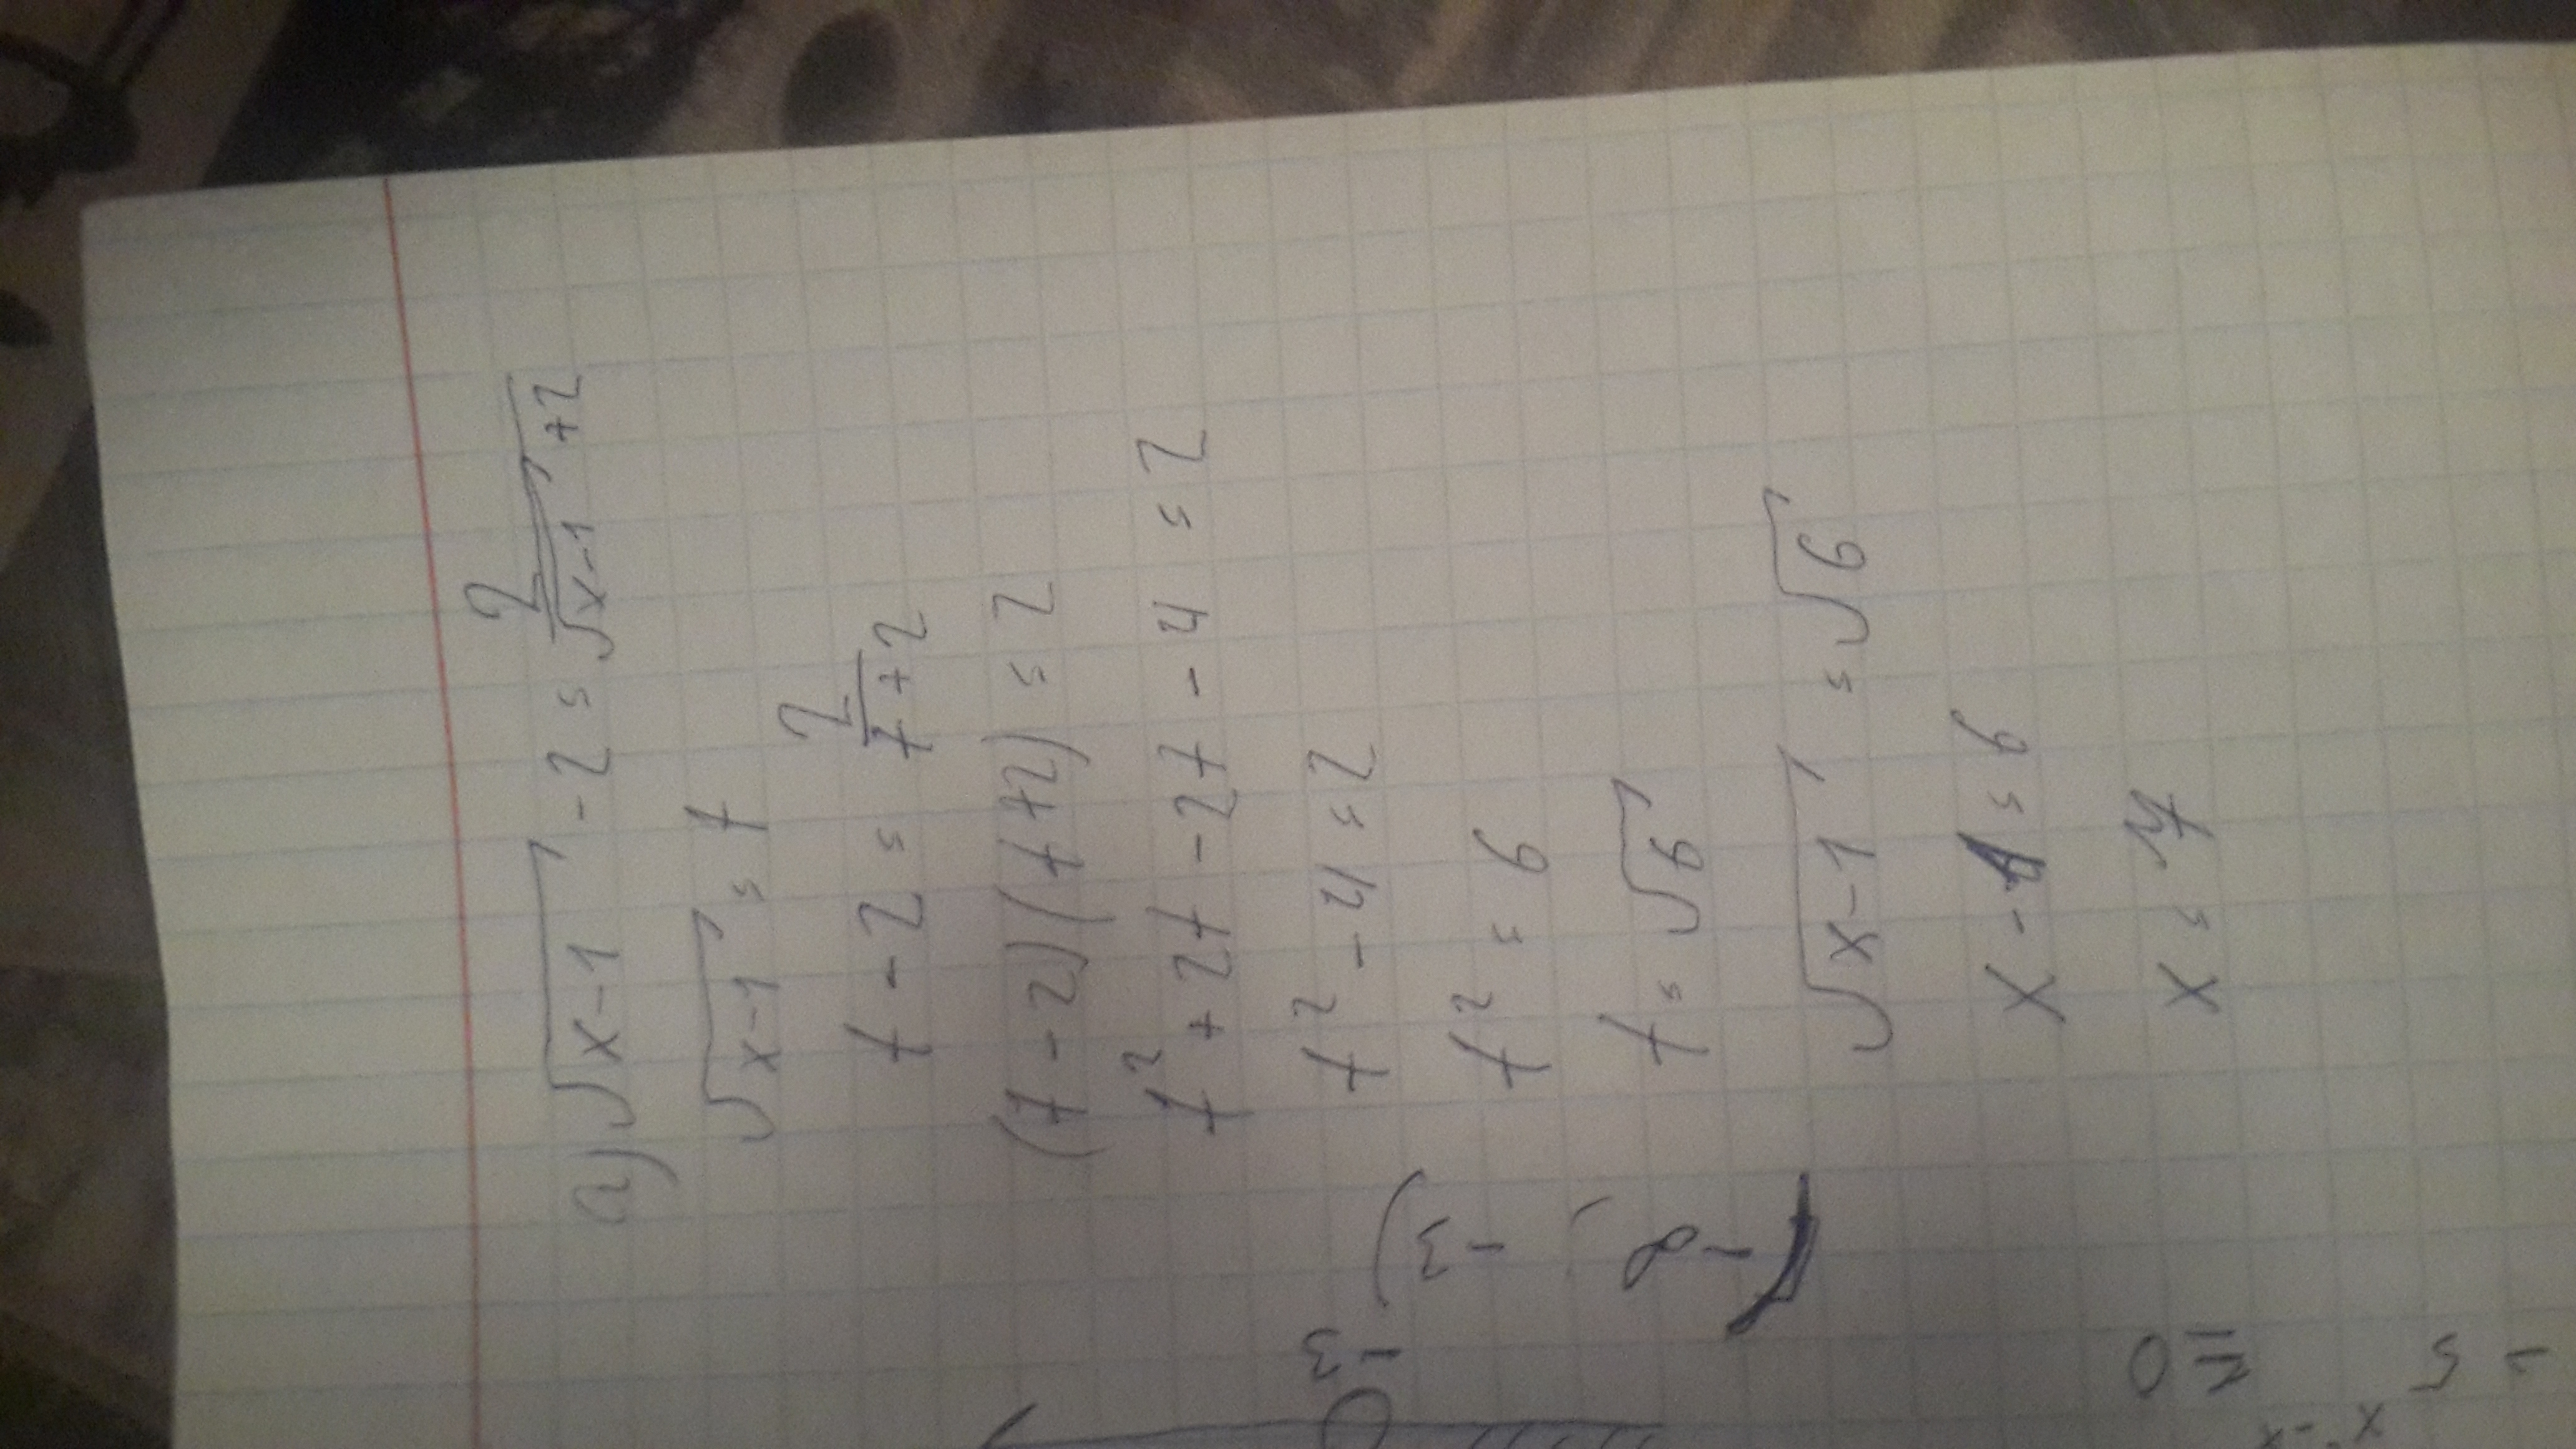 а) √x-1 - 2 = 2/(√x-1 + 2)
√x-1 = t
t - 2 = 2/(t + 2)
(t - 2)(t + 2) = 2
t² + 2t - 2t - 4 = 2
t² - 4 = 2
t² = 6
t = √6
√x-1 = √6
x - 1 = 6
x = 7
(-∞; -3)
-3
- 5
≤ 0